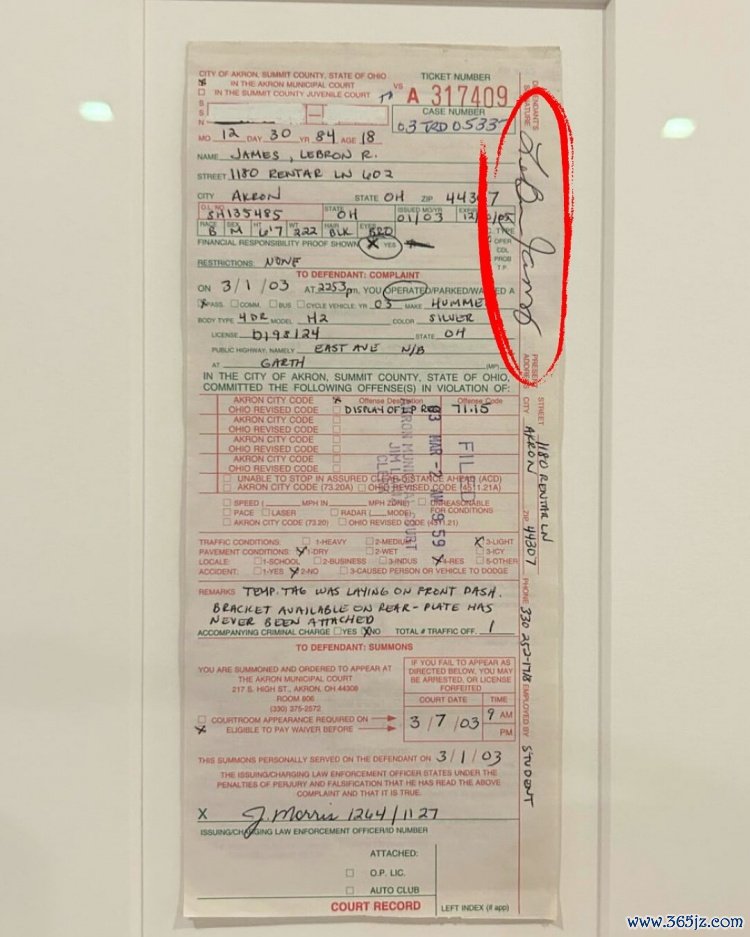 CITY OF AKRON, SUMMIT COUNTY, STATE OF OHIO
IN THE AKRON MUNICIPAL COURT
IN THE SUMMIT COUNTY JUVENILE COURT
VS
TICKET NUMBER
A 317409
CASE NUMBER
03 TRD 05335
S
S
N
MO 12 DAY 30 YR 84 AGE 18
NAME JAMES, LEBRON R.
STREET 1180 RENTAR LN 602
CITY AKRON STATE OH ZIP 44307
D.L. NO. SH135485 STATE OH ISSUED MO/YR 01/03
RACE B SEX M HT 6'7 WT 222 HAIR BLK EYES BRO
TYPE
OPER
CDL
PROB
T.P.
FINANCIAL RESPONSIBILITY PROOF SHOWN X YES
RESTRICTIONS: NONE
TO DEFENDANT: COMPLAINT
ON 3/1/03 AT 2253 pm, YOU OPERATED/PARKED/WALKED A
X PASS. COMM. BUS CYCLE VEHICLE: YR 03 MAKE HUMME
BODY TYPE 4DR MODEL H2 COLOR SILVER
LICENSE D198124 STATE OH
PUBLIC HIGHWAY, NAMELY EAST AVE N/B
AT GARTH (MP)
IN THE CITY OF AKRON, SUMMIT COUNTY, STATE OF OHIO,
COMMITTED THE FOLLOWING OFFENSE(S) IN VIOLATION OF:
AKRON CITY CODE X Offense Description Offense Code
OHIO REVISED CODE DISPLAY OF LP REQ 71.15
AKRON CITY CODE
OHIO REVISED CODE
AKRON CITY CODE
OHIO REVISED CODE
UNABLE TO STOP IN ASSURED CLEAR DISTANCE AHEAD (ACD)
AKRON CITY CODE (73.20A) OHIO REVISED CODE (4511.21A)
SPEED ( MPH IN MPH ZONE) UNREASONABLE
PACE LASER RADAR ( MODE) FOR CONDITIONS
AKRON CITY CODE (73.20) OHIO REVISED CODE (4511.21)
FILED
03 MAR -2 9 59
AKRON MUNICIPAL COURT
JIM L
CLERK
TRAFFIC CONDITIONS: 1-HEAVY 2-MEDIUM X 3-LIGHT
PAVEMENT CONDITIONS: X 1-DRY 2-WET 3-ICY
LOCALE: 1-SCHOOL 2-BUSINESS 3-INDUS X 4-RES 5-OTHER
ACCIDENT: 1-YES X 2-NO 3-CAUSED PERSON OR VEHICLE TO DODGE
REMARKS TEMP. TAG WAS LAYING ON FRONT DASH.
BRACKET AVAILABLE ON REAR - PLATE HAS
NEVER BEEN ATTACHED
ACCOMPANYING CRIMINAL CHARGE YES X NO TOTAL # TRAFFIC OFF. 1
TO DEFENDANT: SUMMONS
YOU ARE SUMMONED AND ORDERED TO APPEAR AT
THE AKRON MUNICIPAL COURT
217 S. HIGH ST., AKRON, OH 44308
ROOM 806
(330) 375-2572
COURTROOM APPEARANCE REQUIRED ON
X ELIGIBLE TO PAY WAIVER BEFORE
IF YOU FAIL TO APPEAR AS
DIRECTED BELOW, YOU MAY
BE ARRESTED, OR LICENSE
FORFEITED
COURT DATE TIME
3/7/03 9 AM
PM
THIS SUMMONS PERSONALLY SERVED ON THE DEFENDANT ON 3/1/03
THE ISSUING/CHARGING LAW ENFORCEMENT OFFICER STATES UNDER THE
PENALTIES OF PERJURY AND FALSIFICATION THAT HE HAS READ THE ABOVE
COMPLAINT AND THAT IT IS TRUE.
X J. Morris 1264/1127
ISSUING/CHARGING LAW ENFORCEMENT OFFICER/ID NUMBER
ATTACHED:
O.P. LIC.
AUTO CLUB
COURT RECORD
LEFT INDEX (if app)
DEFENDANT'S SIGNATURE LeBron James
PRESENT ADDRESS STREET 1180 RENTAR LN
CITY AKRON ZIP 44307 PHONE 330 252-1718 EMPLOYED BY STUDENT
www.365jz.com